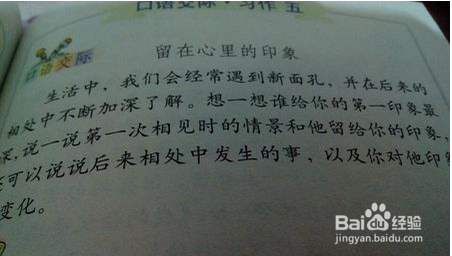 口语交际·习作五
口语交际
留在心里的印象
生活中,我们会经常遇到新面孔,并在后来的
相处中不断加深了解。想一想谁给你的第一印象最
深,说一说第一次相见时的情景和他留给你的印象,
还可以说说后来相处中发生的事,以及你对他印象
变化。
Baidu经验
jingyan.baidu.com